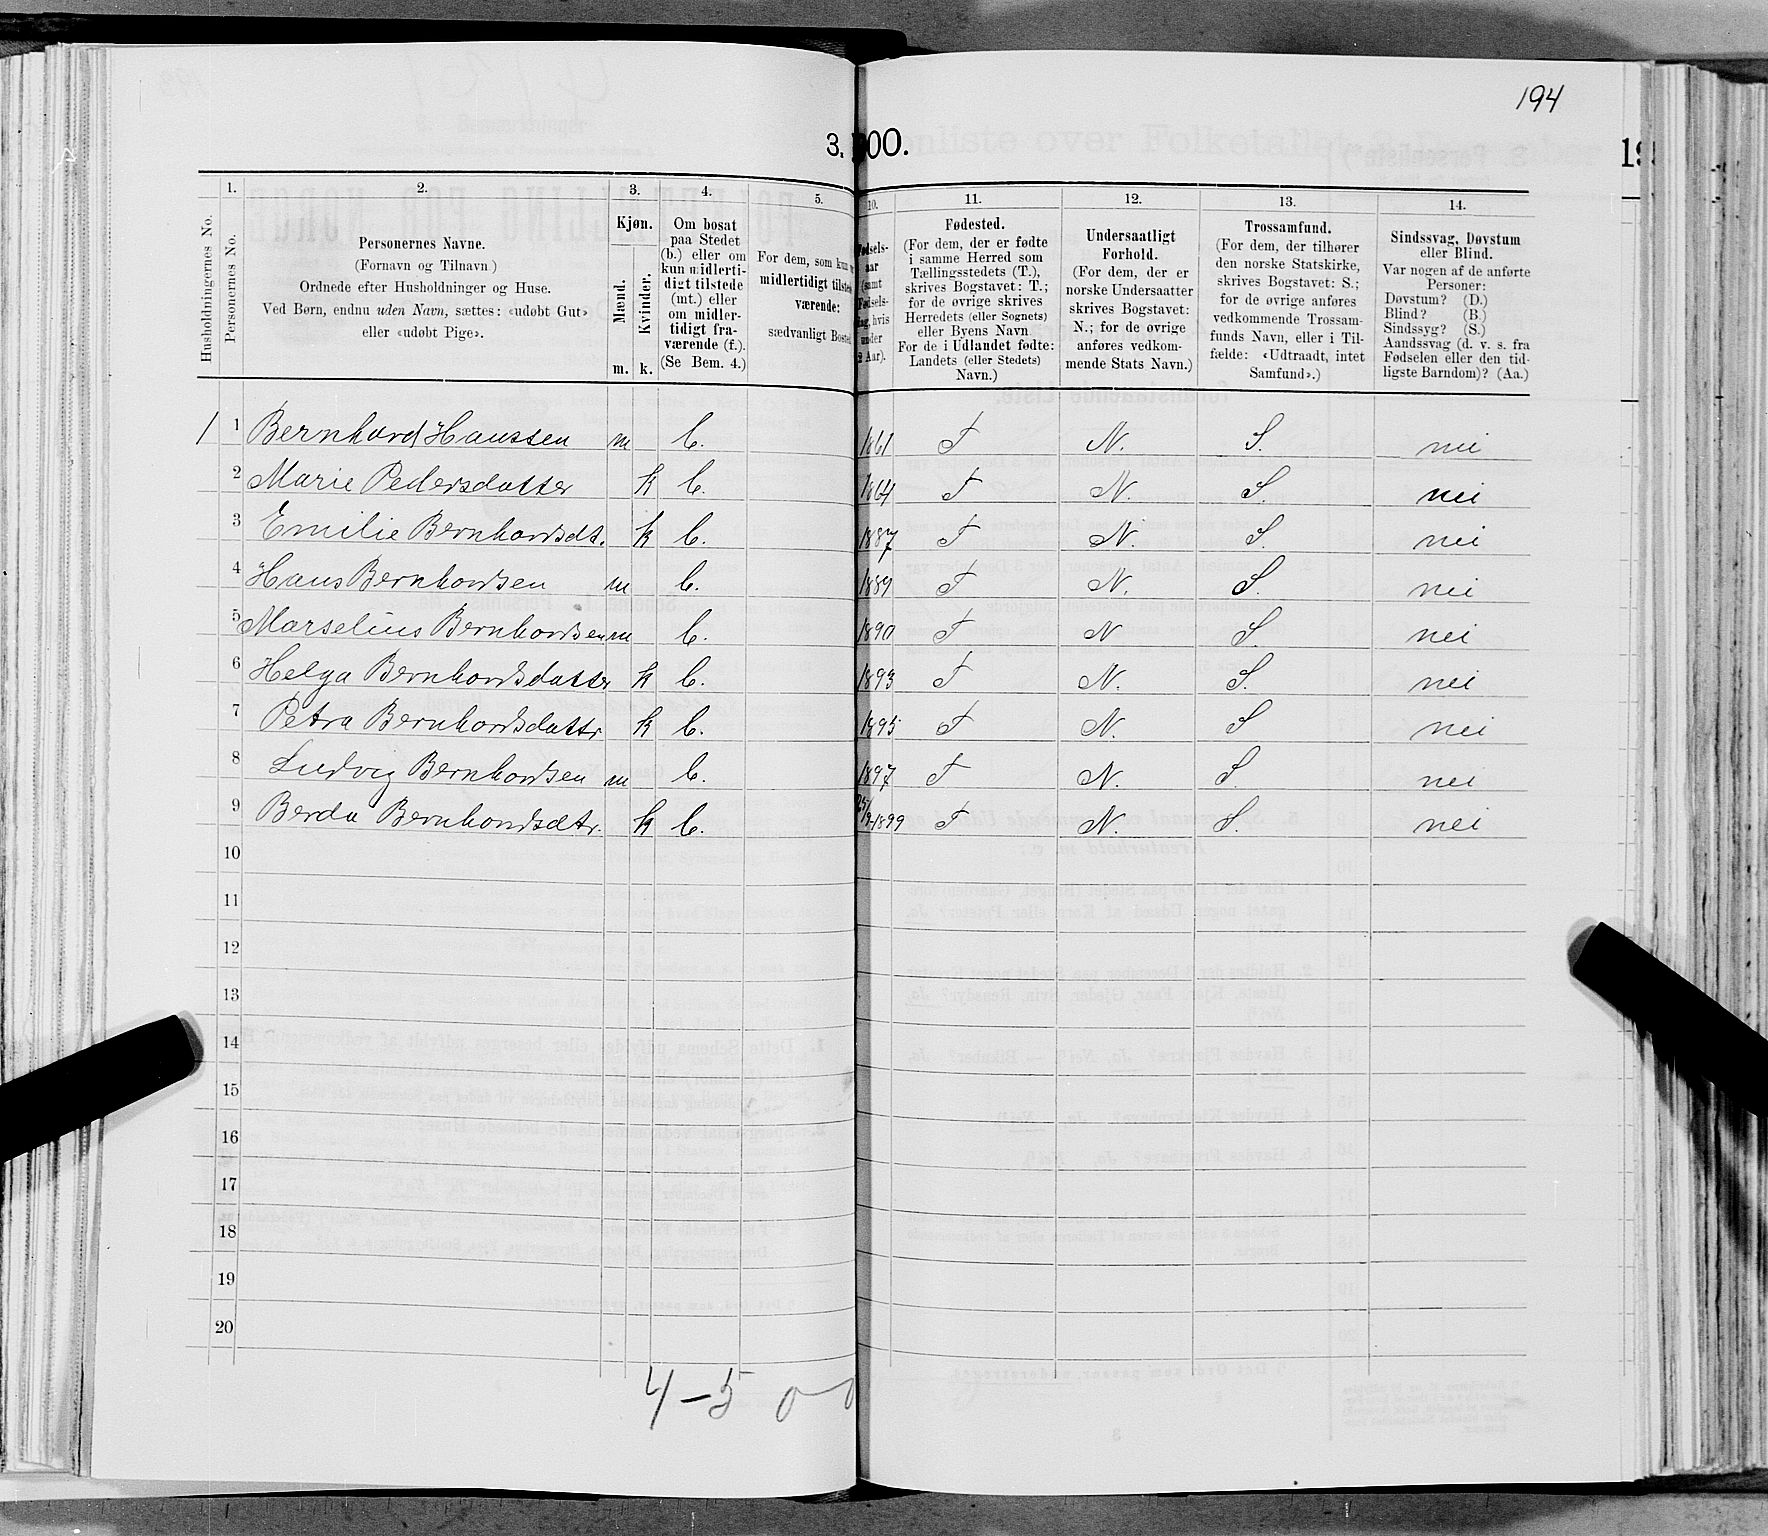 194
3. 00.
19
Husholdningernes No.
1.
Personernes No.
2.
Personernes Navne.
(Fornavn og Tilnavn)
Ordnede efter Husholdninger og Huse.
Ved Børn, endnu uden Navn, sættes: «udøbt Gut»
eller «udøbt Pige».
3.
Kjøn.
Mænd.
Kvinder.
m. k.
4.
Om bosat
paa Stedet
(b.) eller om
kun midlerti-
digt tilstede
(mt.) eller
om midler-
tidigt fra-
værende (f.).
(Se Bem. 4.)
5.
For dem, som kun
midlertidigt tilste
værende:
sædvanligt Bosted
10.
Fødsels-
aar
(samt
Fødsels-
dag, hvis
under
2 Aar).
11.
Fødested.
(For dem, der er fødte
i samme Herred som
Tællingsstedets (T.),
skrives Bogstavet: T.;
for de øvrige skrives
Herredets (eller Sognets)
eller Byens Navn.
For de i Udlandet fødte:
Landets (eller Stedets)
Navn.)
12.
Undersaatligt
Forhold.
(For dem, der er
norske Undersaatter
skrives Bogstavet:
N.; for de øvrige
anføres vedkom-
mende Stats Navn.)
13.
Trossamfund.
(For dem, der tilhører
den norske Statskirke,
skrives Bogstavet: S.;
for de øvrige anføres
vedkommende Trossam-
funds Navn, eller i Til-
fælde: «Udtraadt, intet
Samfund».)
14.
Sindssvag, Døvstum
eller Blind.
Var nogen af de anførte
Personer:
Døvstum? (D.)
Blind? (B.)
Sindssyg? (S.)
Aandssvag (d. v. s. fra
Fødselen eller den tid-
ligste Barndom)? (Aa.)
1 1 Bernhard Hanssen m b. 1861 T N. S. nei
2 Marie Pedersdatter k b. 1864 T N. S. nei
3 Emilie Bernhardsdt. k b. 1887 T N. S. nei
4 Hans Bernhardsen m b. 1889 T N. S. nei
5 Marselius Bernhardsen m b. 1890 T N S. nei
6 Helga Bernhardsdatter k b. 1893 T N. S. nei
7 Petra Bernhardsdattr k b. 1895 T N. S nei
8 Ludvig Bernhardsen m b. 1897 T N. S. nei
9 Berda Bernhardsdtr. k b. 1899 T N. S. nei
10
11
12
13
14
15
16
17
18
19
20
4-5 0-0